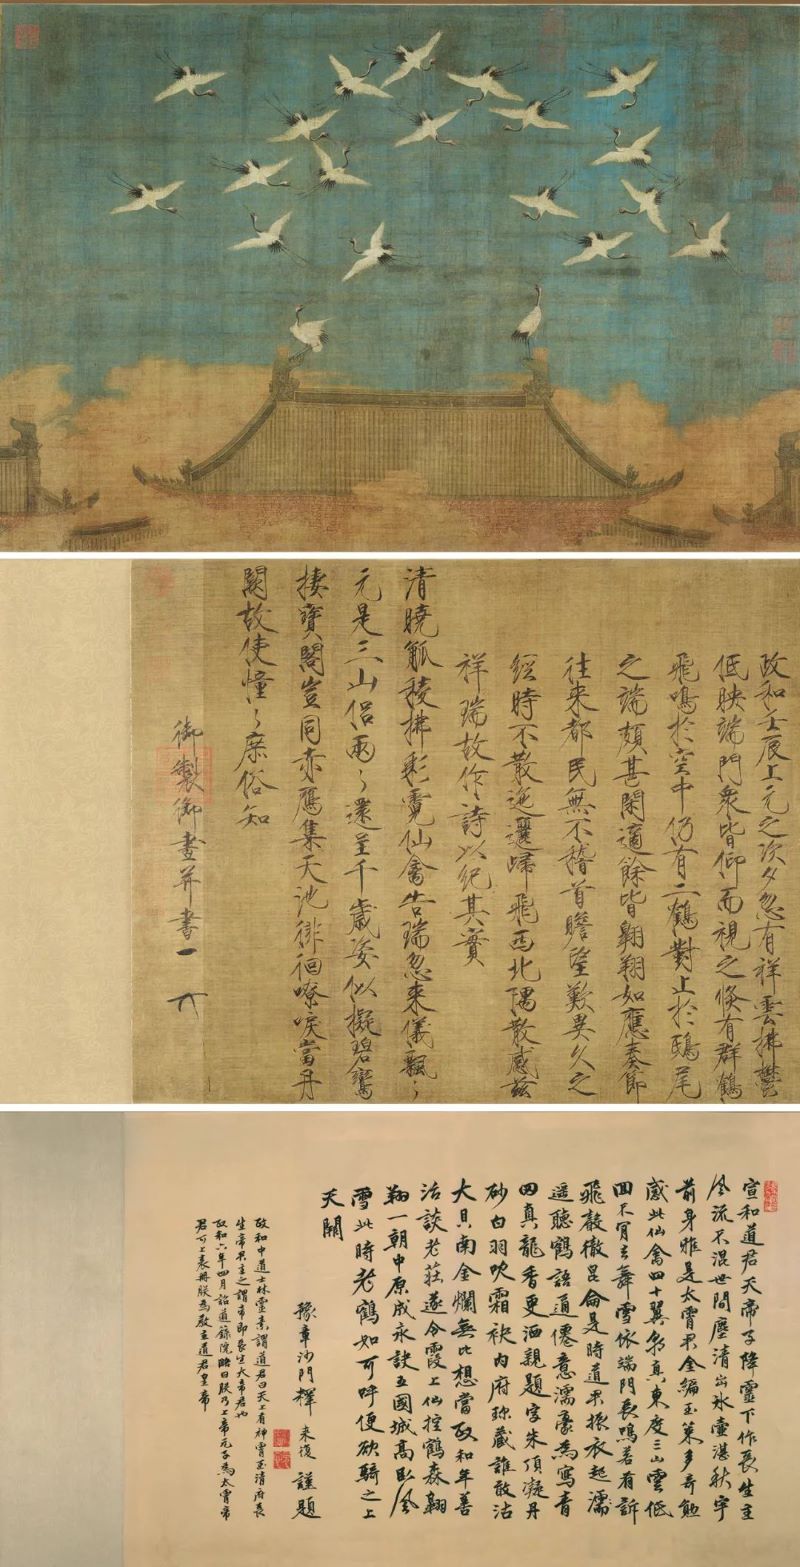 政和壬辰上元之次夕忽有祥雲拂鬱
低映端門衆皆仰而視之倏有群鶴
飛鳴於空中仍有二鶴對止於鴟尾
之端頗甚閑適餘皆翱翔如應奏節
往來都民無不稽首瞻望歎異久之
經時不散迤邐歸飛西北隅散感茲
祥瑞故作詩以紀其實
清曉觚稜拂彩霓仙禽告瑞忽來儀飄〻
元是三山侶兩〻還呈千歲姿似擬碧鸞
棲寶閣豈同赤鴈集天池徘徊嘹唳當丹
闕故使憧〻庶俗知
御製御畫并書
宣和道君天帝子降靈下作長生主
風流不混世間塵清出氷壺湛秋宇
前身雅是太霄君金編玉策多奇勳
感此仙禽四十翼朝真東度三山雲低
回不肎去舞雪依端門長鳴若有訴
飛聲徹昆侖是時道君振衣起濡
遥聽鶴語道僊意濡豪為寫青
田真龍香更洒親題字朱頂凝丹
砂白羽吹霜袂内府珍藏誰敢沽
大貝南金爛無比想當政和年善
治談老莊遂令霞上仙控鶴森翱
翔一朝中原成永訣五國城高臥風
雪此時老鶴如可呼便欲騎之上
天闕
豫章沙門釋 来復 謹題
政和中道士林靈素謂道君曰天上有神霄玉清府長
生帝君主之謂帝即長生大帝君也
政和六年四月詔道錄院略曰朕乃上帝元子為太霄帝
君可上表冊朕為教主道君皇帝